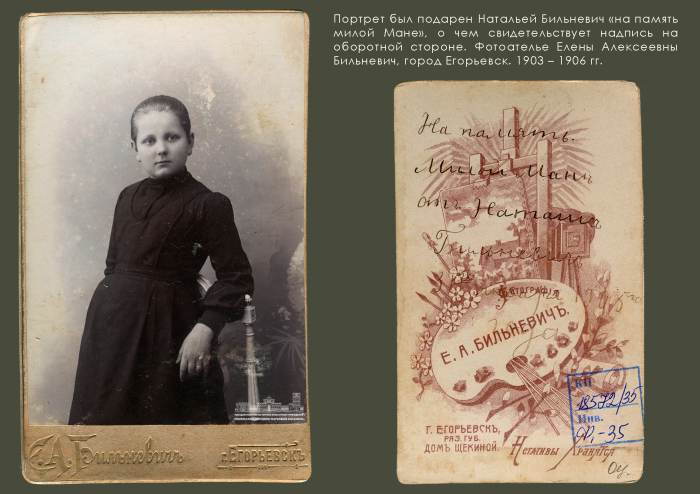 Портрет был подарен Натальей Бильневич «на память
милой Мане», о чем свидетельствует надпись на
оборотной стороне. Фотоателье Елены Алексеевны
Бильневич, город Егорьевск. 1903 – 1906 гг.
На память.
Милой Мани
отъ Наташи
Бильневичъ
ФОТОГРАФІЯ
Е. А. БИЛЬНЕВИЧЪ.
КП
18572/35
Инв.
-35
Г. ЕГОРЬЕВСКЪ,
РЯЗ. ГУБ.
ДОМЪ ЩЕКИНОЙ.
Негативы Хранятся
Е.А. Бильневичъ
г. ЕГОРЬЕВСКЪ